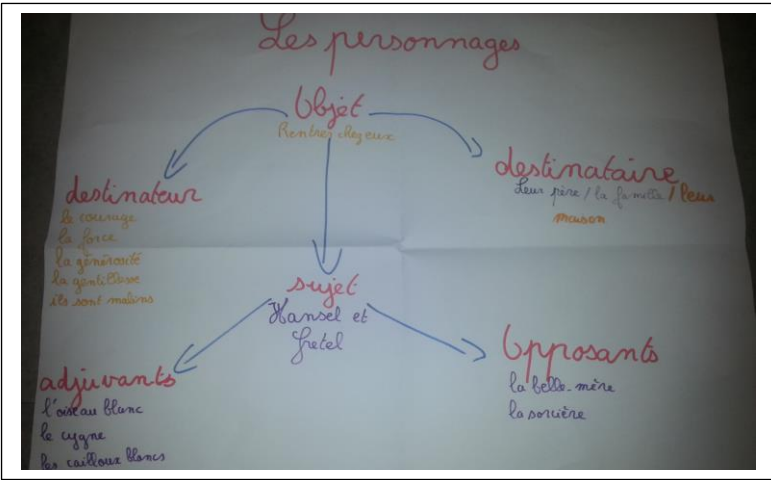 Les personnages
Objet
Rentrer chez eux
destinateur
le courage
la force
la générosité
la gentillesse
ils sont malins
destinataire
Leur père / la famille / leur
maison
sujet
Hansel et
Gretel
adjuvants
l'oiseau blanc
le cygne
les cailloux blancs
Opposants
la belle-mère
la sorcière